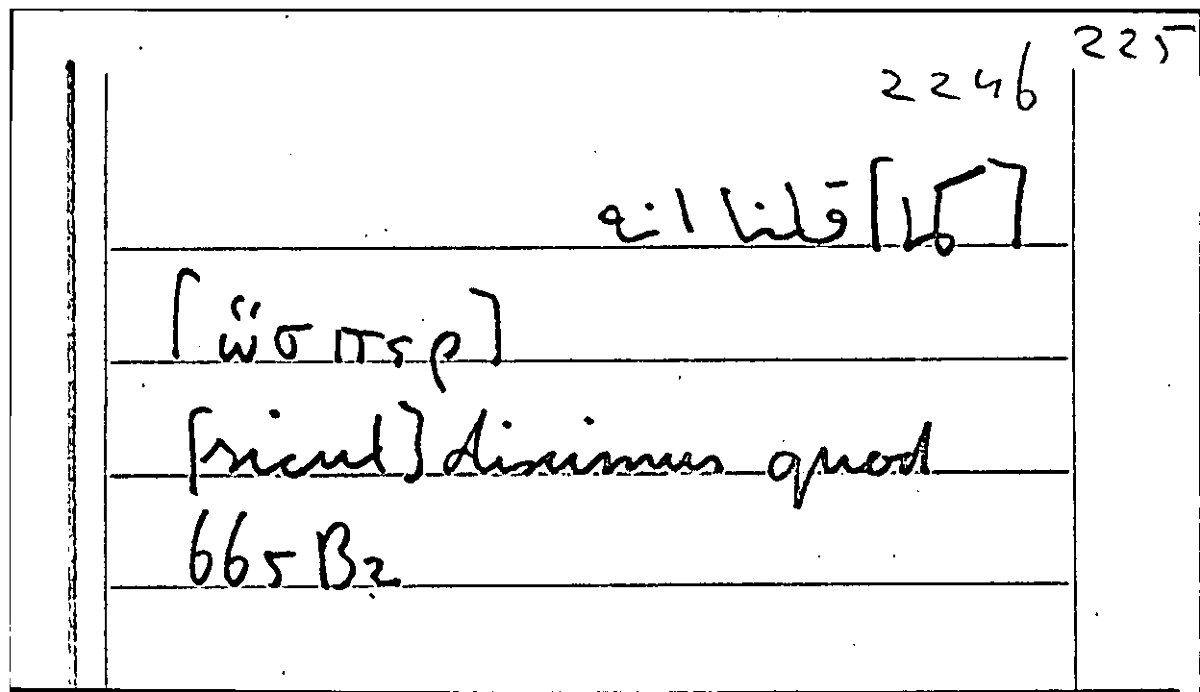 225
2246
[كما] قلنا انه
[ὥσπερ]
[sicut] diximus quod
665B2